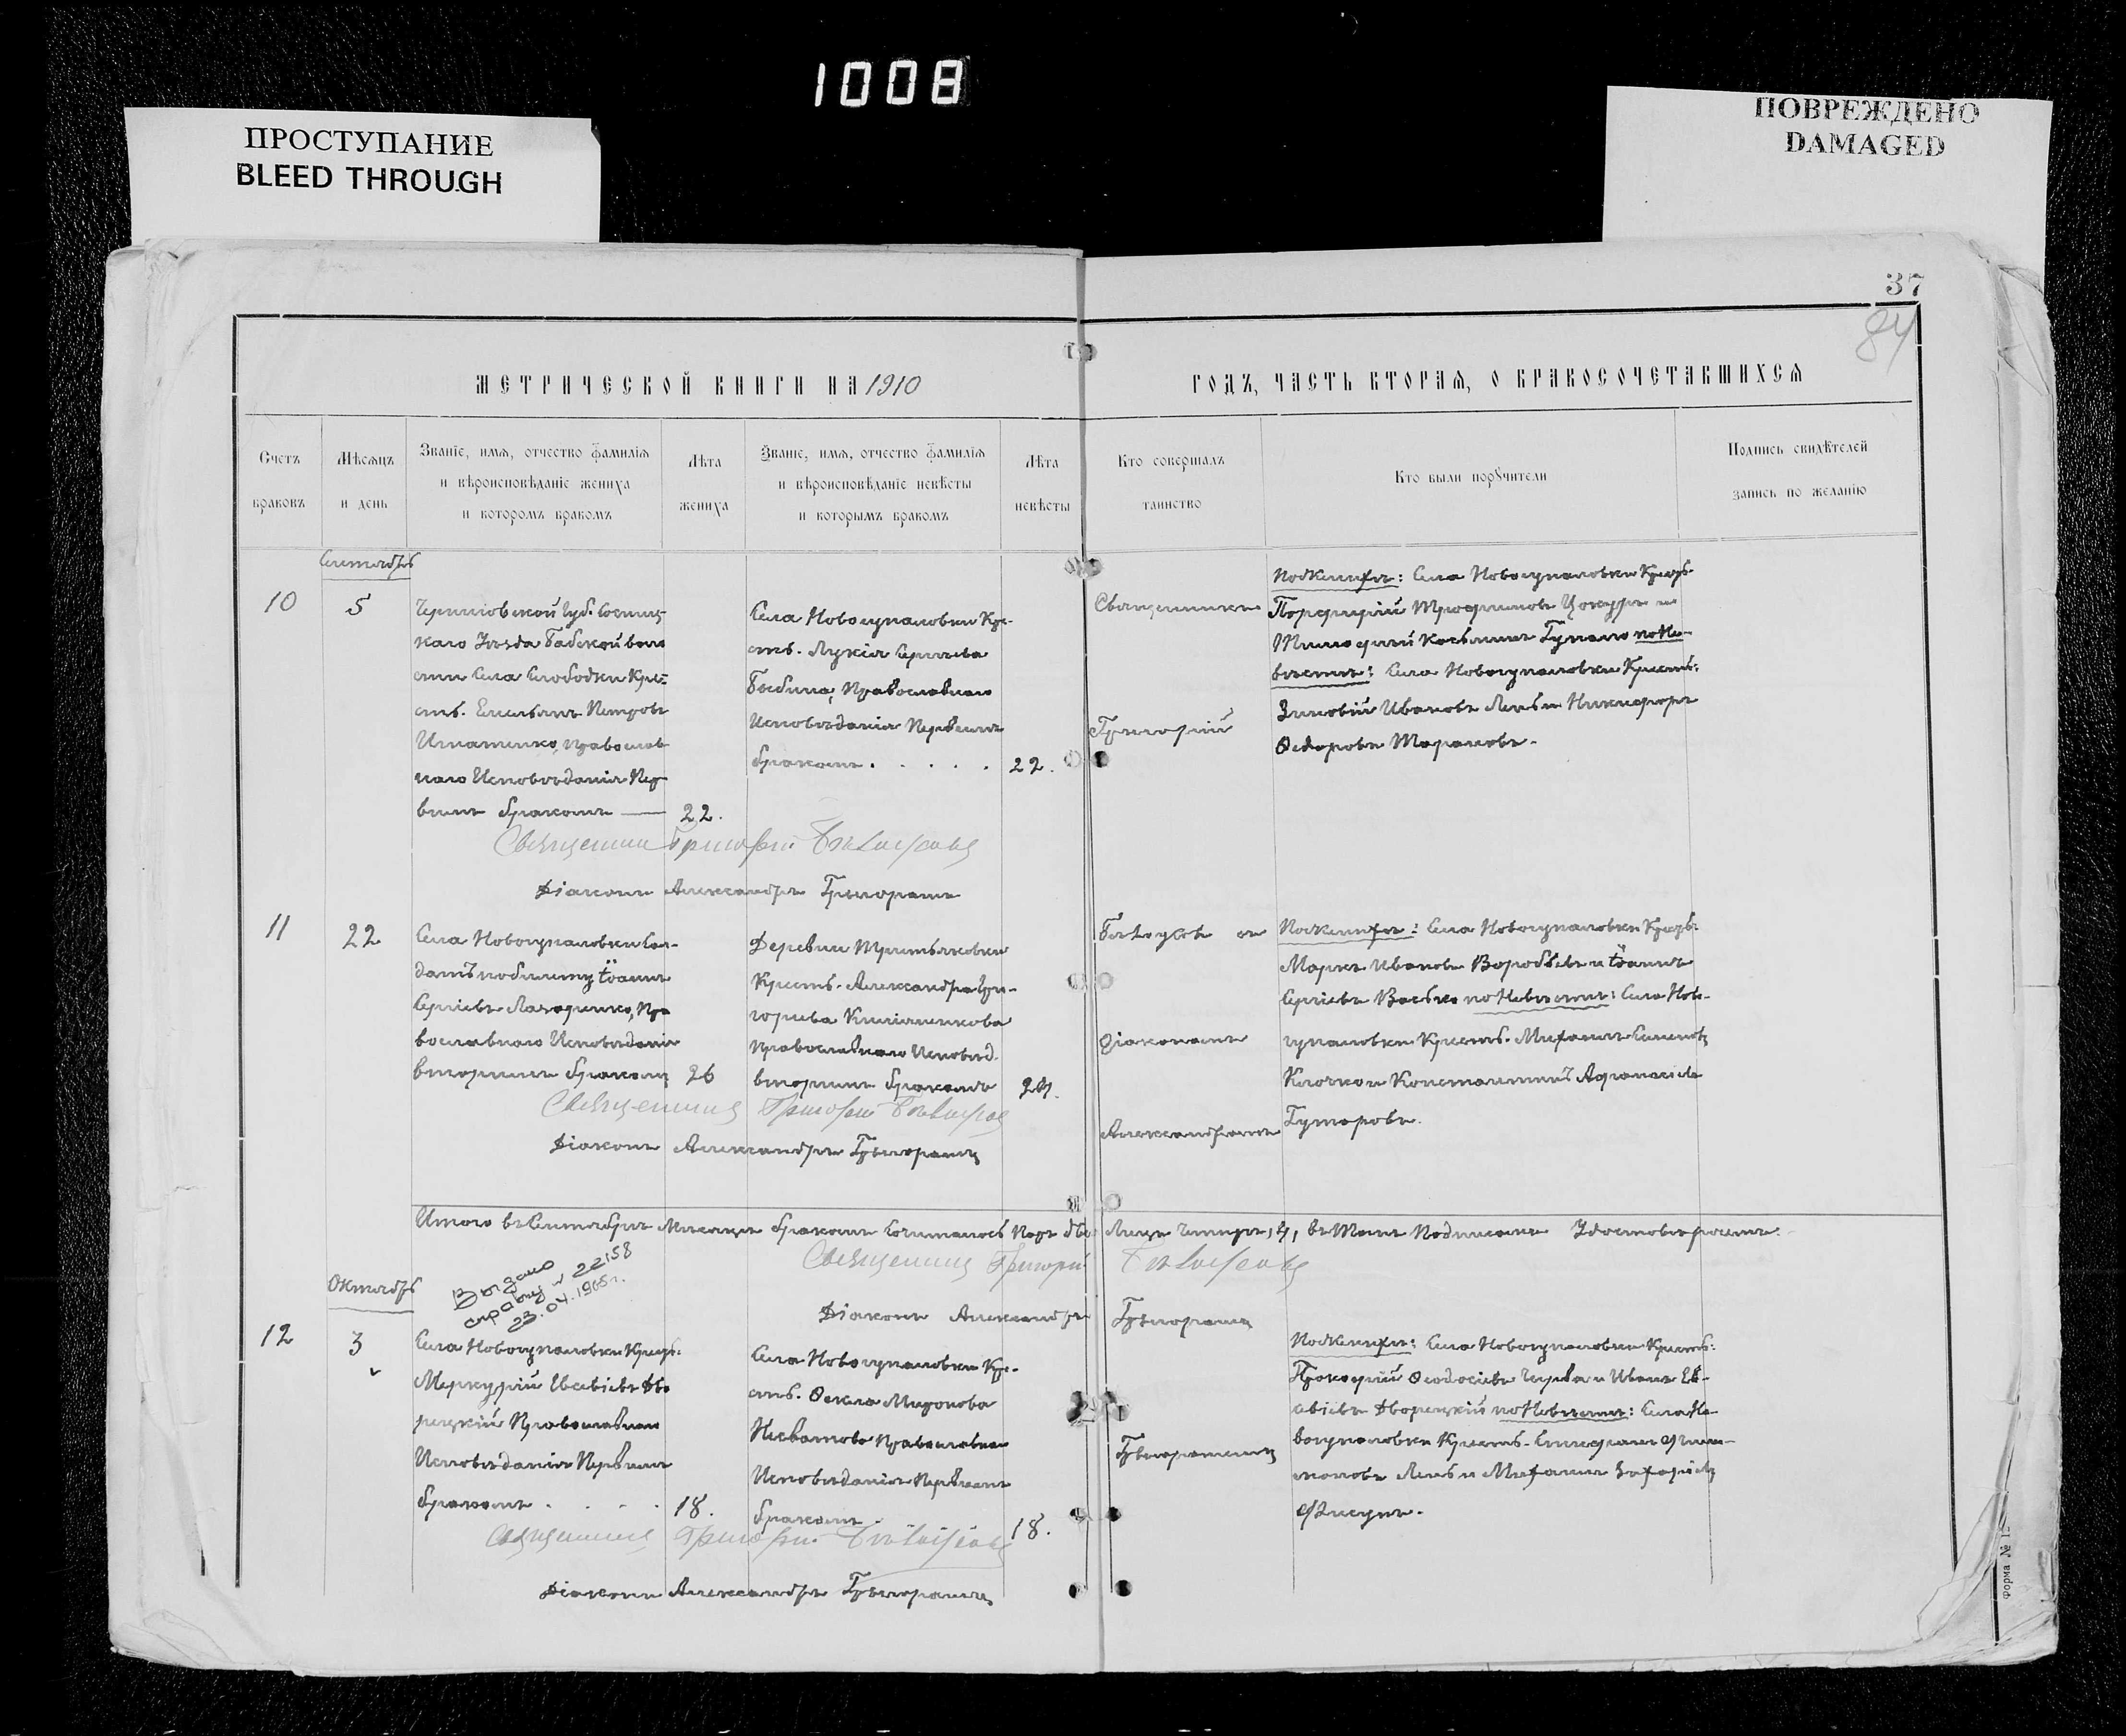 1008
ПРОСТУПАНИЕ
BLEED THROUGH
ПОВРЕЖДЕНО
DAMAGED
37
84
МЕТРИЧЕСКОЙ КНИГИ НА 1910
ГОДЪ, ЧАСТЬ ВТОРАЯ, О БРАКОСОЧЕТАВШИХСЯ
Счетъ
браковъ
Мѣсяцъ
и день
Званіе, имя, отчество фамилія
и вѣроисповѣданіе жениха
и которомъ бракомъ
Лѣта
жениха
Званіе, имя, отчество фамилія
и вѣроисповѣданіе невѣсты
и которымъ бракомъ
Лѣта
невѣсты
Кто совершалъ
таинство
Кто были поручители
Подпись свидѣтелей
запись по желанію
Сентябрь
10
5
Черниговской Губ. Сосниц-
каго Уѣзда Бабской воло
сти Села Слободки Кре-
ст. Емельянъ Петровъ
Игнатенко, православ
наго Исповѣданія Пер-
вымъ бракомъ
22.
Села Новогупаловки Кре-
ст. Лукія Сергѣева
Бабина, Православнаго
Исповѣданія Первымъ
бракомъ
22.
Священникъ
Григорій
По Женихѣ: Села Новогупаловки Крест.
Порфирій Трофимовъ и
Тимофей Косьминъ Гупало по Не-
вѣстѣ: Села Новогупаловки Крест:
Зиновій Ивановъ Лень и Никифоръ
Ѳедоровъ Тарановъ.
Священникъ Григорій
Діаконъ Александръ
11
22
Села Новогупаловки Сол-
датъ Іоаннъ
Сергіевъ Назаренко, Пра
вославнаго Исповѣданія
вторымъ бракомъ
26
Деревни Третьяковки
Крест. Александра Гри-
горьева
Православнаго Исповѣд.
вторымъ бракомъ
съ
діакономъ
Александромъ
По Женихѣ: Села Новогупаловки Крест:
Маркъ Ивановъ Воробьевъ и Іоаннъ
Сергіевъ Васько по Невѣстѣ: Села Ново-
гупаловки Крест. Михаилъ Симеоновъ
Клочко и Константинъ Афанасіевъ
Гуторовъ.
Священникъ Григорій
Діаконъ Александръ
Итого въ Сентябрѣ Мѣсяцѣ бракомъ Сочиталось Паръ двѣ Лицъ Четыре, 4, въ Томъ Подписомъ Удостовѣряемъ:
Священникъ Григорій
Діаконъ Александръ
Выдано
справку № 22158
23.04.1965г.
Октябрь
12
3
Села Новогупаловки Крест.
Меркурій Евсевіевъ Дво
рецкій Православнаго
Исповѣданія Первымъ
бракомъ
18.
Села Новогупаловки Кре-
ст. Ѳекла Миронова
Православнаго
Исповѣданія Первымъ
бракомъ
18.
По Женихѣ: Села Новогупаловки Крест:
Прокофій Ѳеодосіевъ Черва и Иванъ Ев-
севіевъ Дворецкій по Невѣстѣ: Села Но-
вогупаловки Крест. Епифанъ Фили-
моновъ Лень и Михаилъ Захаріевъ
Фисунъ.
Священникъ Григорій
Діаконъ Александръ
Форма № 1